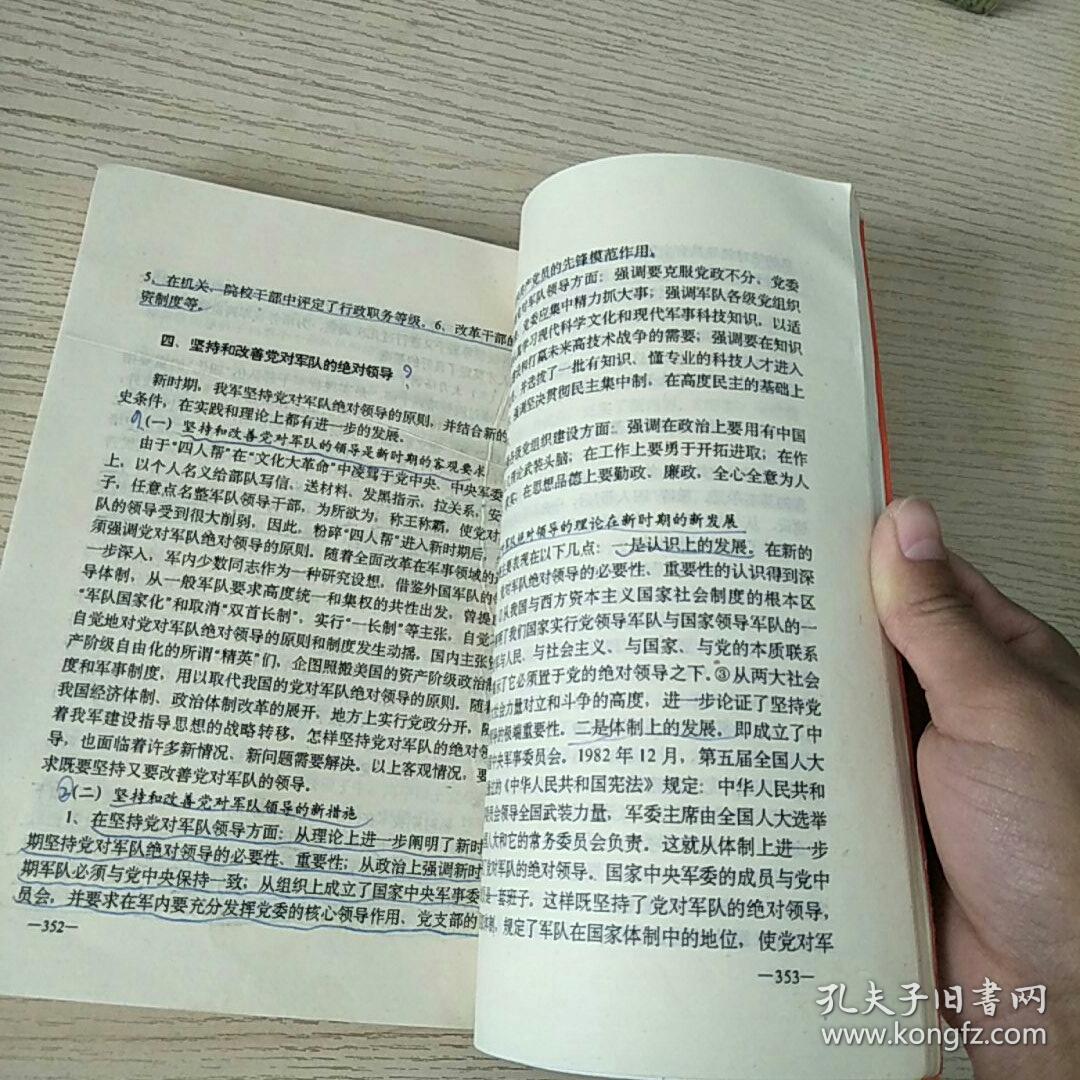 5、在机关、院校干部中评定了行政职务等级。6、改革干部的
资制度等。
四、坚持和改善党对军队的绝对领导
新时期，我军坚持党对军队绝对领导的原则，并结合新的
史条件，在实践和理论上都有进一步的发展。
(一) 坚持和改善党对军队的领导是新时期的客观要求
由于“四人帮”在“文化大革命”中凌驾于党中央、中央军委
上，以个人名义给部队写信、送材料、发黑指示、拉关系，安
子，任意点名整军队领导干部，为所欲为，称王称霸，使党对
队的领导受到很大削弱，因此，粉碎“四人帮”进入新时期后，
须强调党对军队绝对领导的原则。随着全面改革在军事领域的
一步深入，军内少数同志作为一种研究设想，借鉴外国军队的
导体制，从一般军队要求高度统一和集权的共性出发，曾提
“军队国家化”和取消“双首长制”，实行“一长制”等主张，自觉
自觉地对党对军队绝对领导的原则和制度发生动摇。国内主张
产阶级自由化的所谓“精英”们，企图照搬美国的资产阶级政治
度和军事制度，用以取代我国的党对军队绝对领导的原则。随
我国经济体制、政治体制改革的展开，地方上实行党政分开，
着我军建设指导思想的战略转移，怎样坚持党对军队的绝对领
导，也面临着许多新情况、新问题需要解决。以上客观情况，要
求既要坚持又要改善党对军队的领导。
(二) 坚持和改善党对军队领导的新措施
1、在坚持党对军队领导方面：从理论上进一步阐明了新时
期坚持党对军队绝对领导的必要性、重要性；从政治上强调新时
期军队必须与党中央保持一致；从组织上成立了国家中央军事委
员会，并要求在军内要充分发挥党委的核心领导作用、党支部的
—352—
产党员的先锋模范作用。
对军队领导方面：强调要克服党政不分、党委
，党委应集中精力抓大事；强调军队各级党组织
学习现代科学文化和现代军事科技知识，以适
和打赢未来高技术战争的需要；强调要在知识
，并选拨了一批有知识、懂专业的科技人才进入
强调坚决贯彻民主集中制，在高度民主的基础上
级党组织建设方面：强调在政治上要用有中国
理论武装头脑；在工作上要勇于开拓进取；在作
实；在思想品德上要勤政、廉政，全心全意为人
队绝对领导的理论在新时期的新发展
要表现在以下几点：一是认识上的发展。在新的
对军队绝对领导的必要性、重要性的认识得到深
从我国与西方资本主义国家社会制度的根本区
了我们国家实行党领导军队与国家领导军队的一
与人民、与社会主义、与国家、与党的本质联系
示了它必须置于党的绝对领导之下。③从两大社会
力量对立和斗争的高度，进一步论证了坚持党
极端重要性。二是体制上的发展，即成立了中
中央军事委员会。1982年12月，第五届全国人大
的《中华人民共和国宪法》规定：中华人民共和
员会领导全国武装力量，军委主席由全国人大选举
人大和它的常务委员会负责。这就从体制上进一步
对军队的绝对领导。国家中央军委的成员与党中
是一套班子，这样既坚持了党对军队的绝对领导，
，规定了军队在国家体制中的地位，使党对军
—353—
孔夫子旧書网
www.kongfz.com